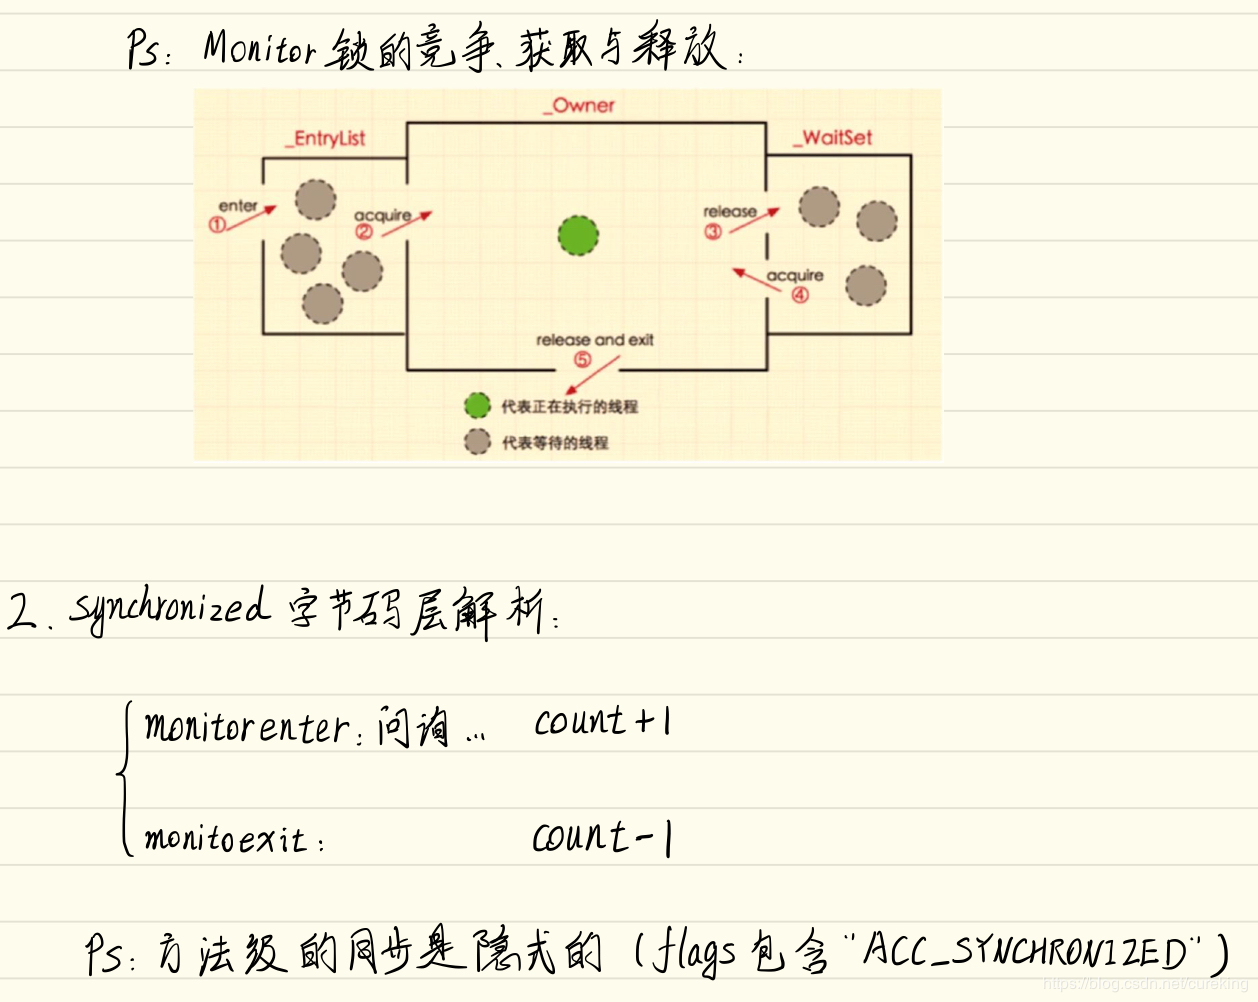 Ps: Monitor 锁的竞争、获取与释放:
_Owner
_EntryList
_WaitSet
enter
①
acquire
②
release
③
acquire
④
release and exit
⑤
代表正在执行的线程
代表等待的线程
2. synchronized 字节码层解析:
monitorenter: 问询... count+1
monitoexit: count-1
Ps: 方法级的同步是隐式的 (flags 包含 "ACC_SYNCHRONIZED")
https://blog.csdn.net/cureking